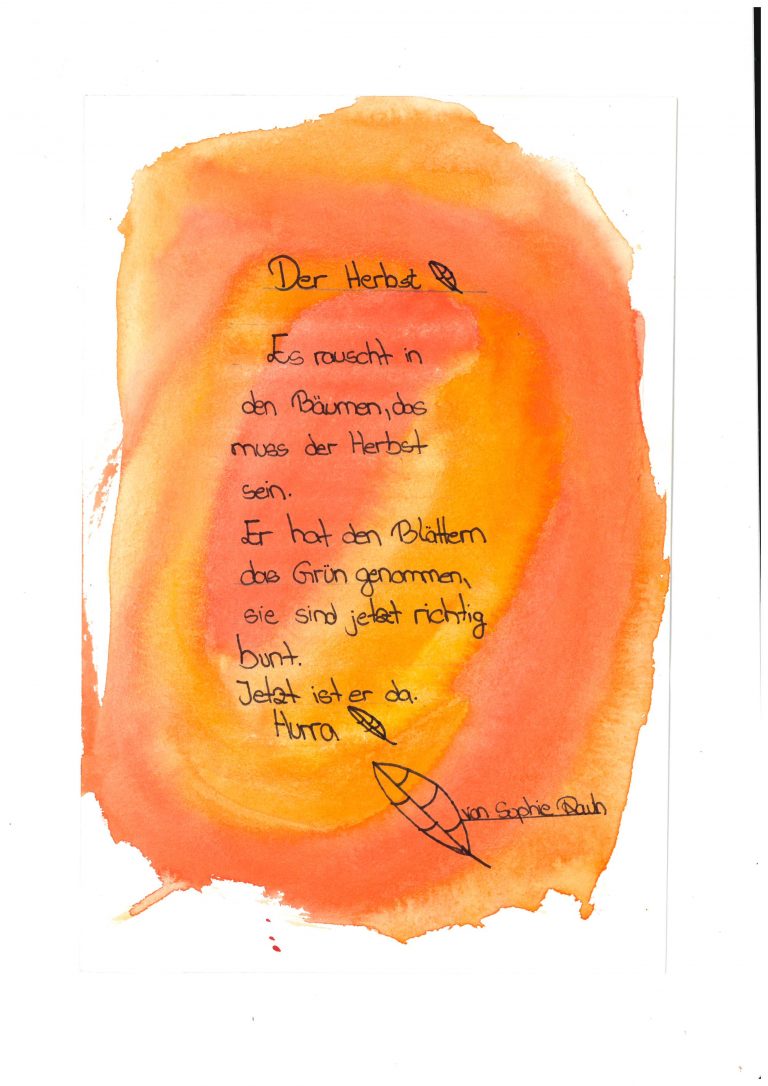 Der Herbst
Es rauscht in
den Bäumen, das
muss der Herbst
sein.
Er hat den Blättern
das Grün genommen,
sie sind jetzt richtig
bunt.
Jetzt ist er da.
Hurra
von Sophie Rauh